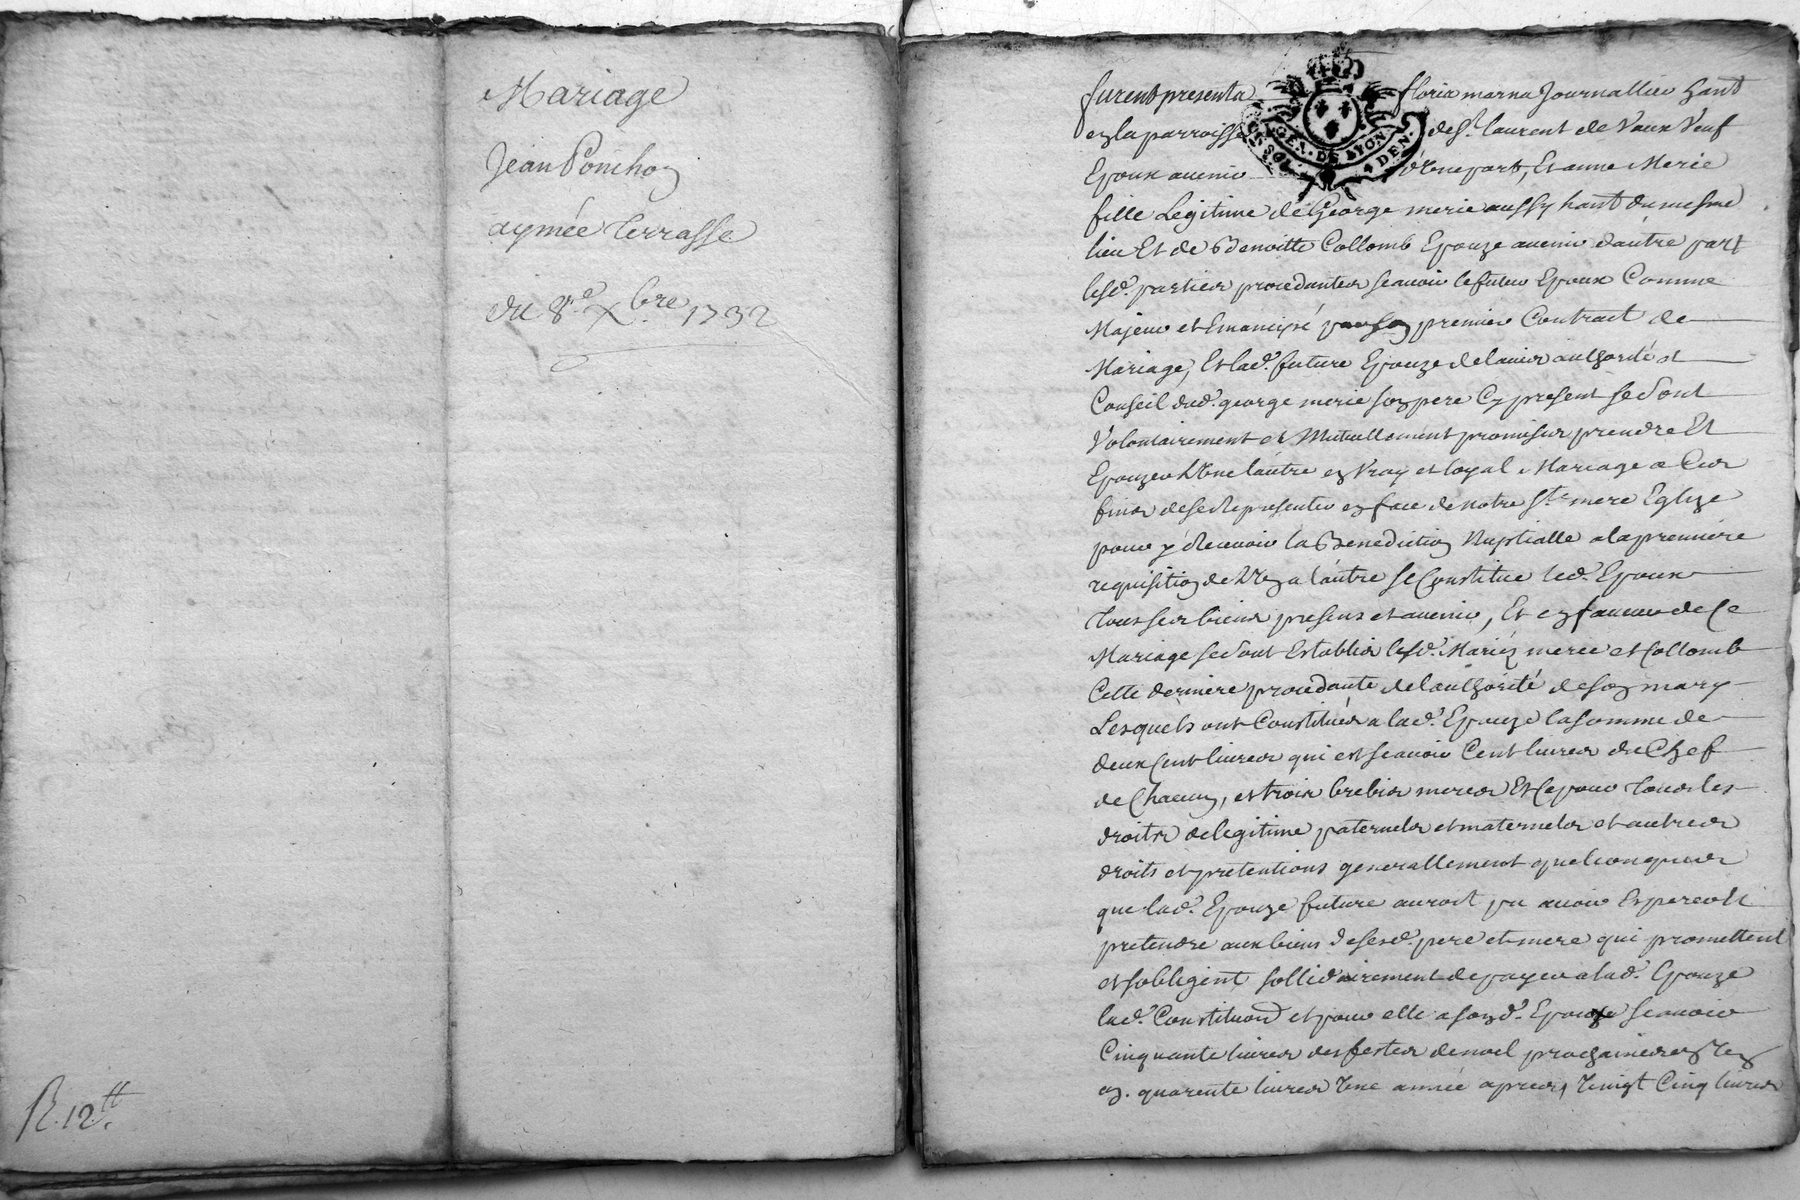 Mariage
Jean Ponchon
aymée Terrasse
du 8e Xbre 1732
R. 12tt
furent presents floris marna Journallier hant
en la parroisse de St laurent de Vaux Veuf
Epoux avenir d'Une part, Et anne Merie
fille Legitime de George merie aussy hant du mesme
lieu Et de Benoitte Collomb Epouze avenir d'autre part
lesd. parties procedantes scavoir le futur Epoux Comme
Majeur et Emancipé par son premier Contract de
Mariage, Et lad. future Epouze de lauis authorité et
Conseil dud. george merie son pere Cy present se sont
Volontairement et Mutuellement promis se prendre Et
Epouzer L'Une lautre en Vray et loyal Mariage a Ces
fins de se Representer en face de notre Ste mere Eglize
pour y Recevoir la Benediction Nuptialle a la premiere
requisition de L'Un a lautre se Constitue led. Epoux
Tous ses biens presens et avenir, Et en faveur de Ce
Mariage se sont Establis lesd. Mariez merie et Collomb
Cette derniere procedante de lauthorité de son mary
Lesquels ont Constitués a lad. Epouze la somme de
deux Cent livres qui est scavoir Cent livres du Chef
de Chacun, et trois brebis meres Et Ce pour Tous les
droits de legitime paternels et maternels et autres
droits et pretentions generallement quelconques
que lad. Epouze future auroit pu avoir Esperer et
pretendre aux biens de sesd. pere et mere qui promettent
et sobligent sollidairement de payer a lad. Epouze
lad. Constituon et pour elle a sond. Epoux scavoir
Cinquante livres des festes de noel prochaines en Un
an. quarente livres Une année apres, Vingt Cinq livres